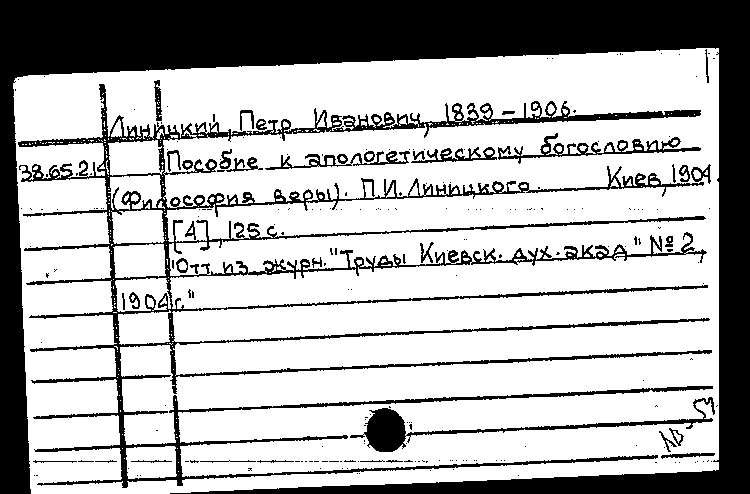 Линицкий, Петр Иванович, 1839 – 1906.
38.65.214 Пособие к апологетическому богословию
(Философия веры). П.И. Линицкого. Киев, 1904.
[4], 125 с.
"Отт. из журн. "Труды Киевск. дух. акад" № 2,
1904 г."